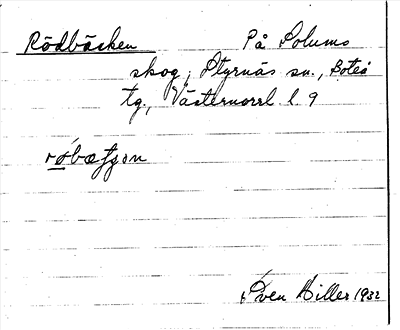 Rödbäcken På Solums
skog, Styrnäs sn., Boteå
tg., Västernorrl. l. 9
røbæʃɡɔn
Sven Hiller 1932